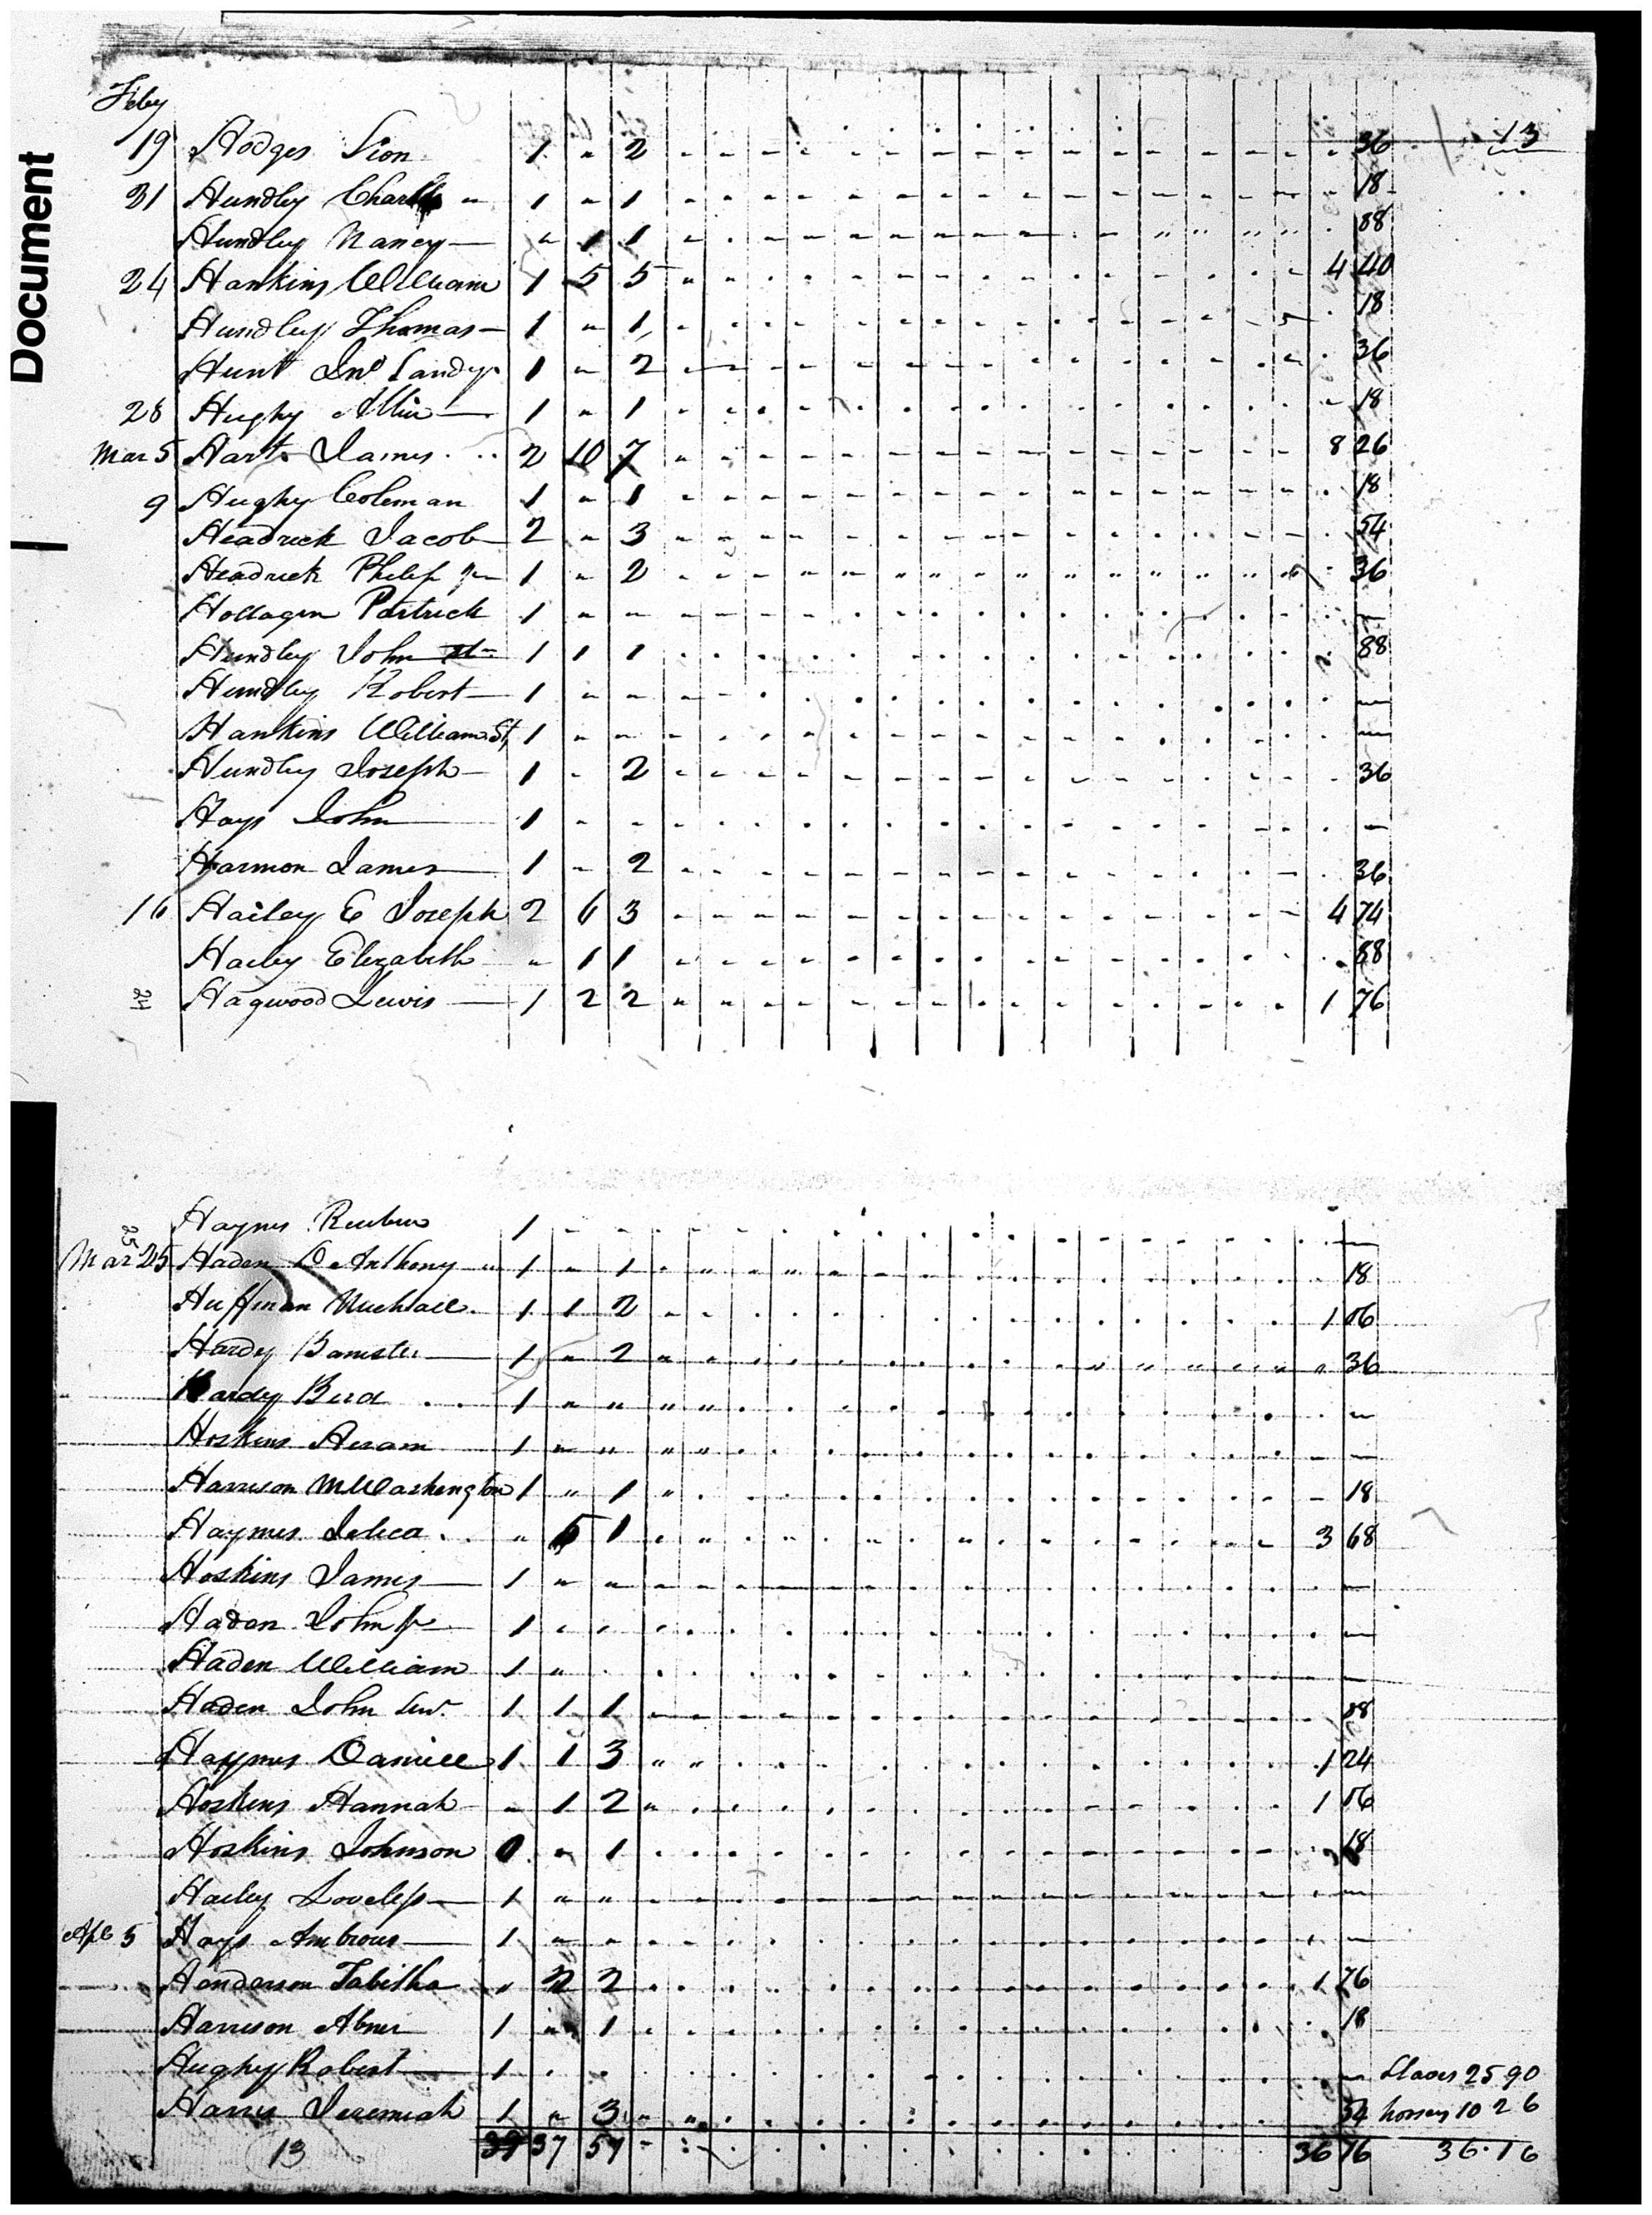 Document
Feby
13
19 Hodges Sion 1 " 2 36
21 Hundley Charles " 1 " 1 18
Hundley Nancy " 1 1 88
24 Hankins William 1 5 5 4 40
Hundley Thomas 1 " 1 18
Hunt Jno Landy 1 " 2 36
28 Hughy 1 " 1 18
Mar 5 Hart James 2 10 7 8 26
9 Hughy Coleman 1 " 1 18
Headrick Jacob 2 " 3 54
Headrick Philip Jr 1 " 2 36
Hollagen Partrick 1 " " —
Hundley John 1 1 1 88
Hundley Robert 1 " " —
Hankins William St, 1 " " —
Hundley Joseph 1 " 2 36
Hays John 1 " " —
Harmon James 1 " 2 36
16 Hailey E Joseph 2 6 3 4 74
Hailey Elizabeth " 1 1 88
24 Hagwood Lewis 1 2 2 1 76
25 Haynes Reuben 1 " " —
Mar 25 Haden D Anthony 1 " 1 18
Huffman Michael 1 1 2 1 06
Hardy Banister 1 " 2 36
Hardy Bird 1 " " —
Hoskins Hiram 1 " " —
Harrison M Washington 1 " 1 18
Haymes " 5 1 3 68
Hoskins James 1 " " —
Haden John Jr 1 " " —
Haden William 1 " " —
Haden John Senr. 1 1 1 88
Haymes Daniell 1 1 3 1 24
Hoskins Hannah " 1 2 1 06
Hoskins Johnson 0 " 1 18
Hailey Loveless 1 " " —
Apl 5 Hays Ambrous 1 " " —
Henderson Tabitha " 2 2 1 76
Harrison Abner 1 " 1 18
Hughy Robert 1 " " — Slaves 25 90
Harris Jeremiah 1 " 3 54 horses 10 26
13 39 37 57 36 16 36.16